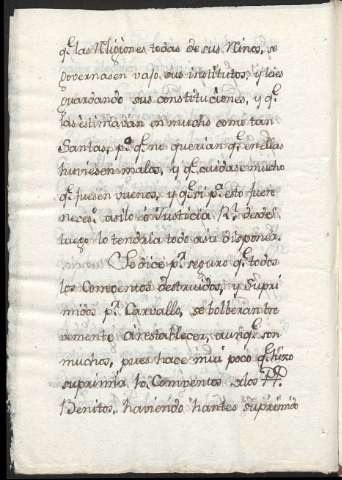 q.e las Religiones todas de sus Rinos, se
governasen vajo sus institutos, y leies
guardando sus constituciones, y q.e
las estimavan en mucho como tan
Santas, p.o q.e no querian q.e en ellas
huviesen malos, y q.e cuidase mucho
q.e fuesen vuenos, y q.e si p.a esto fuere
neces.o asilo con Justicia R.l desde
luego lo tendria todo a su disposon.
Se dice p.r seguro q.e todos
los Comventos destruidos, y supri
midos p.r Carvallo, se bolberan bre
vemente a restablecer, aunq.e son
muchos, pues hace mui poco q.e hizo
suprimir 10. Comventos a los PP.
Benitos, haviendo hantes suprimido